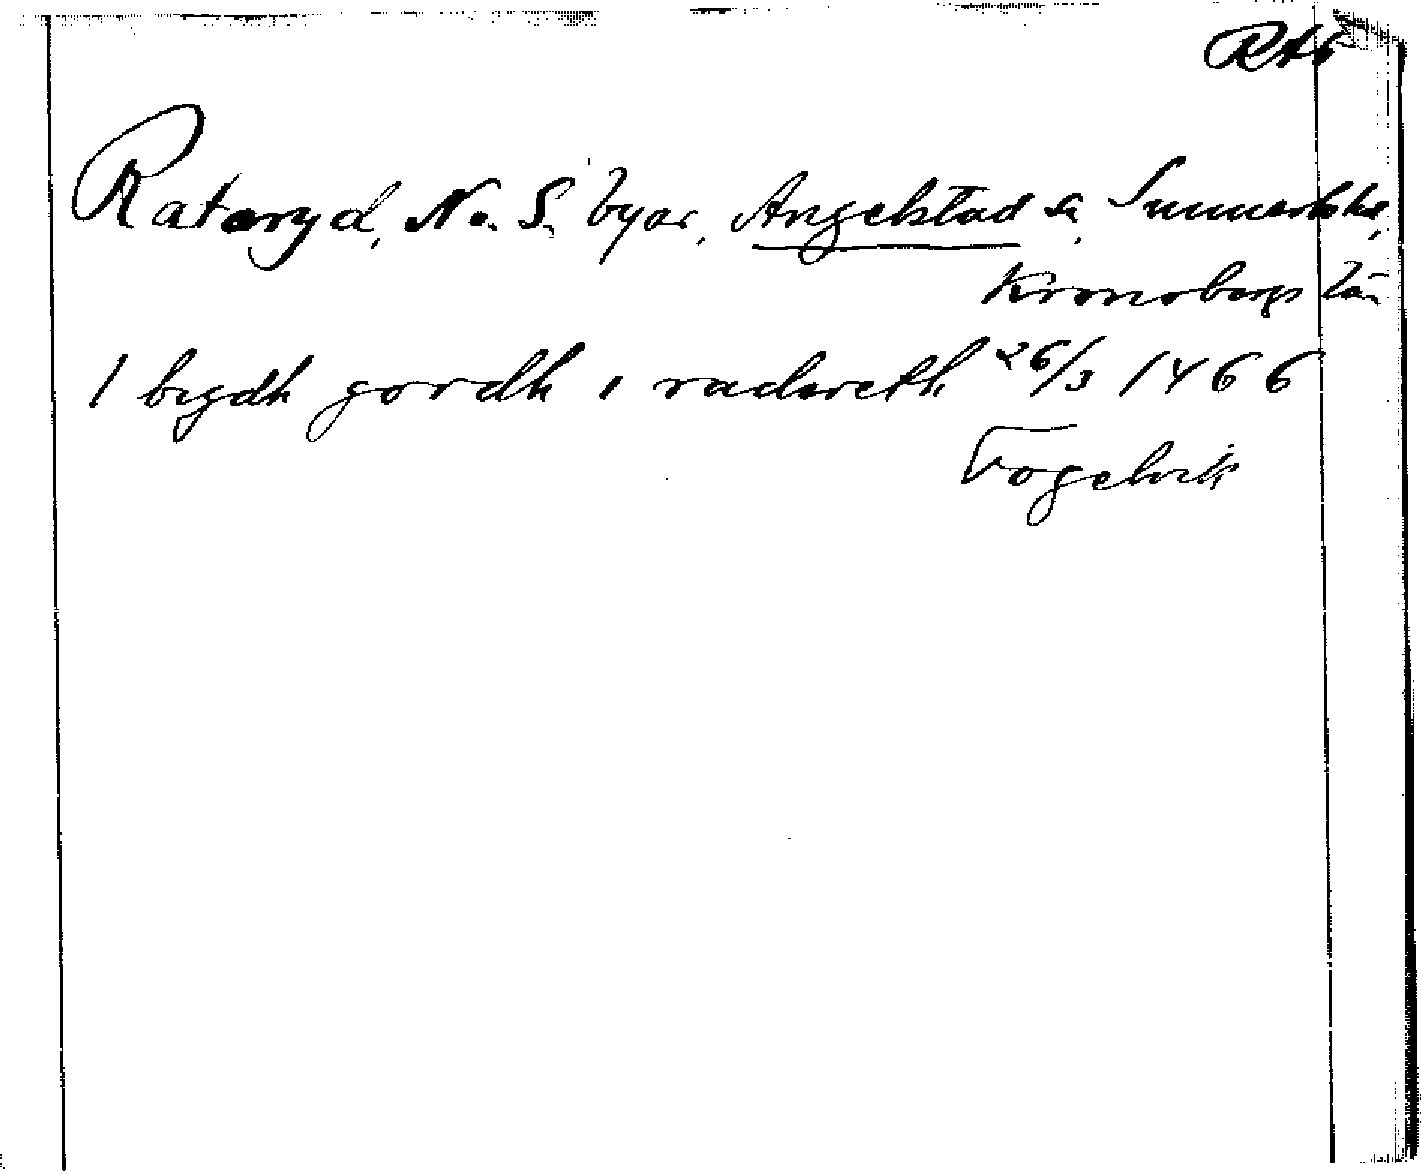 RAÄ
Rataryd, N. o. S. byar, Angelstad sn, Sunnerbo hd,
Kronobergs län
1 bygdh gordh i radæreth 26/3 1466
Fogelvik